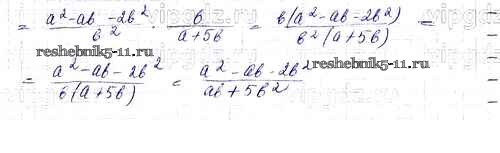 = \frac{a^2-ab-2b^2}{b^2} \cdot \frac{b}{a+5b} = \frac{b(a^2-ab-2b^2)}{b^2(a+5b)} =
= \frac{a^2-ab-2b^2}{b(a+5b)} = \frac{a^2-ab-2b^2}{ab+5b^2}
reshebnik5-11.ru reshebnik5-11.ru